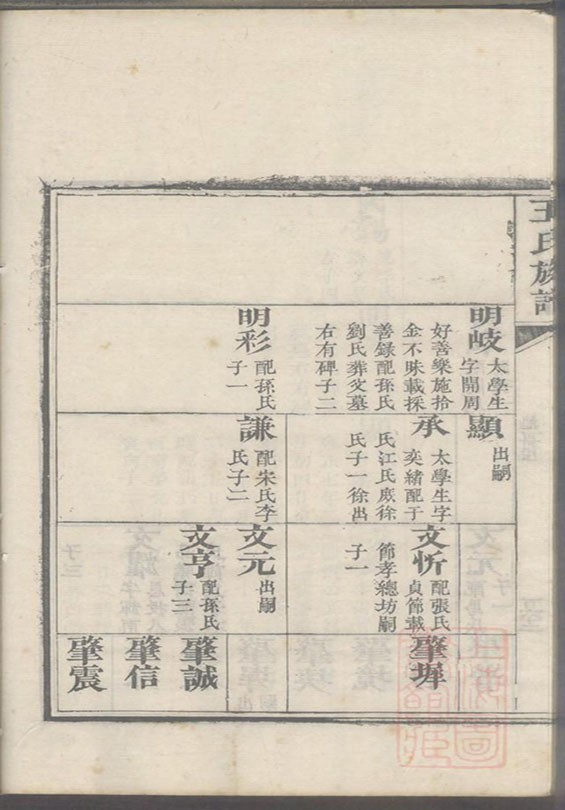 王氏族譜
明岐
太學生
字開周
好善樂施拾
金不昧載採
善錄配孫氏
劉氏葬父墓
右有碑子二
明彩
配孫氏
子一
顯
出嗣
承
太學生字
奕緒配于
氏江氏庶徐
氏子一徐出
謙
配宋氏李
氏子二
文忻
配張氏
貞節載
節孝總坊嗣
子一
文元
出嗣
文亨
配孫氏
子三
肇墀
肇誠
肇信
肇震